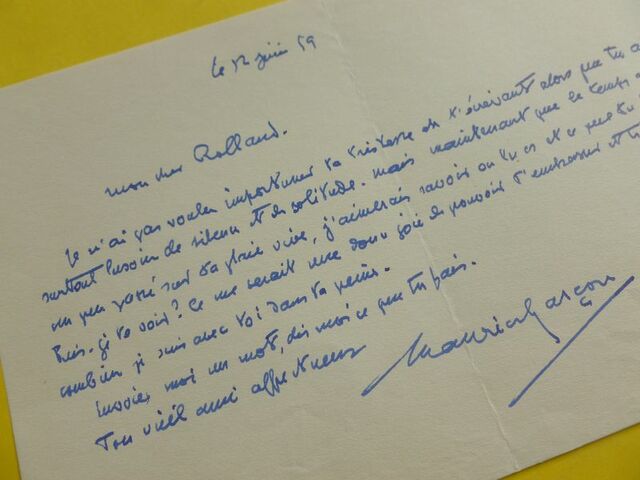 le 12 juin 59
mon cher Rolland.
Je n'ai pas voulu importuner ta tristesse en t'écrivant alors que tu a
surtout besoin de silence et de solitude. mais maintenant que le temps a
un peu passé sur ta plaie vive, j'aimerais savoir où tu es et ce que tu
Puis-je te voir? Ce me serait une douce joie de pouvoir t'embrasser et te
combien je suis avec toi dans ta peine.
Envoie moi un mot, dis moi ce que tu fais.
Ton vieil ami affectueux
Maurice Garçon